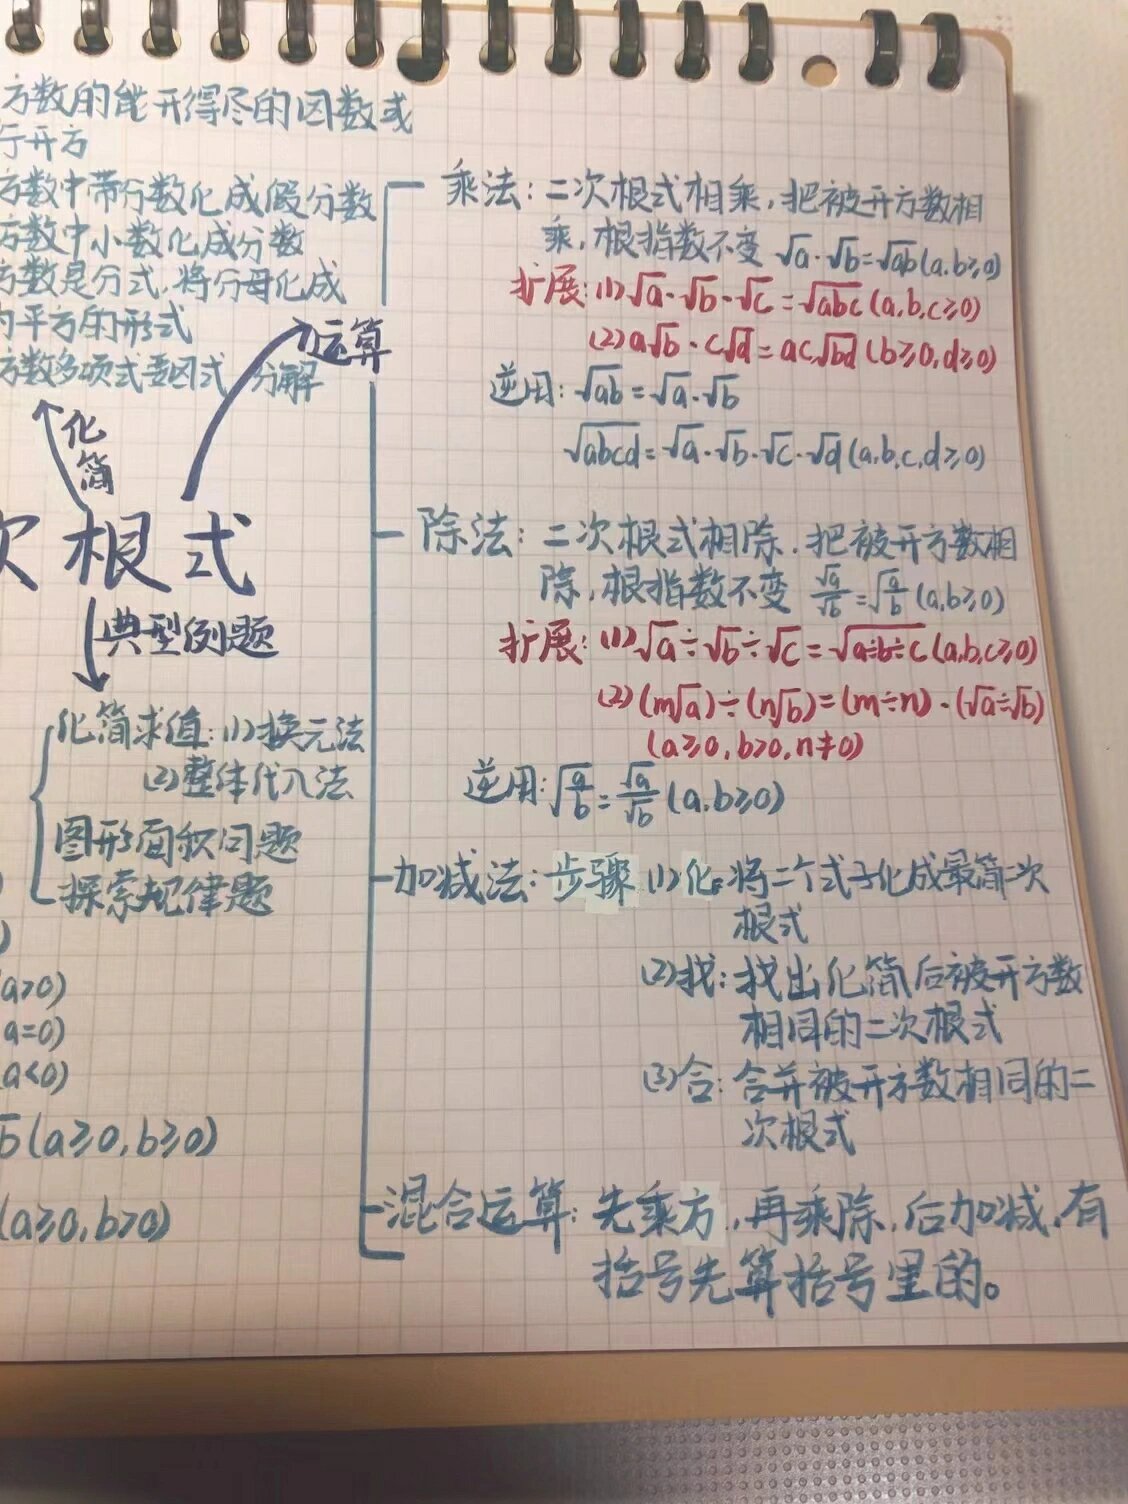 方数的能开得尽的因数或
行开方
方数中带分数化成假分数
方数中小数化成分数
方数是分式,将分母化成
的平方的形式
方数多项式要因式 分解
化简
运算
次根式
典型例题
化简求值:(1)换元法
(2)整体代入法
图形面积问题
探索规律题
(a>0)
a=0)
(a<0)
b(a≥0,b≥0)
(a≥0,b>0)
乘法:二次根式相乘,把被开方数相
乘,根指数不变 √a·√b=√ab(a,b≥0)
扩展:(1)√a·√b·√c=√abc(a,b,c≥0)
(2)a√b·c√d=ac√bd(b≥0,d≥0)
逆用:√ab=√a·√b
√abcd=√a·√b·√c·√d(a,b,c,d≥0)
除法:二次根式相除,把被开方数相
除,根指数不变 √a/√b=√(a/b)(a,b≥0)
扩展:(1)√a÷√b÷√c=√a÷b÷c(a,b,c≥0)
(2)(m√a)÷(n√b)=(m÷n)·(√a÷√b)
(a≥0,b>0,n≠0)
逆用:√(a/b)=√a/√b(a,b≥0)
加减法:步骤(1)化:将二个式子化成最简二次
根式
(2)找:找出化简后被开方数
相同的二次根式
(3)合:合并被开方数相同的二
次根式
混合运算:先乘方,再乘除,后加减,有
括号先算括号里的。